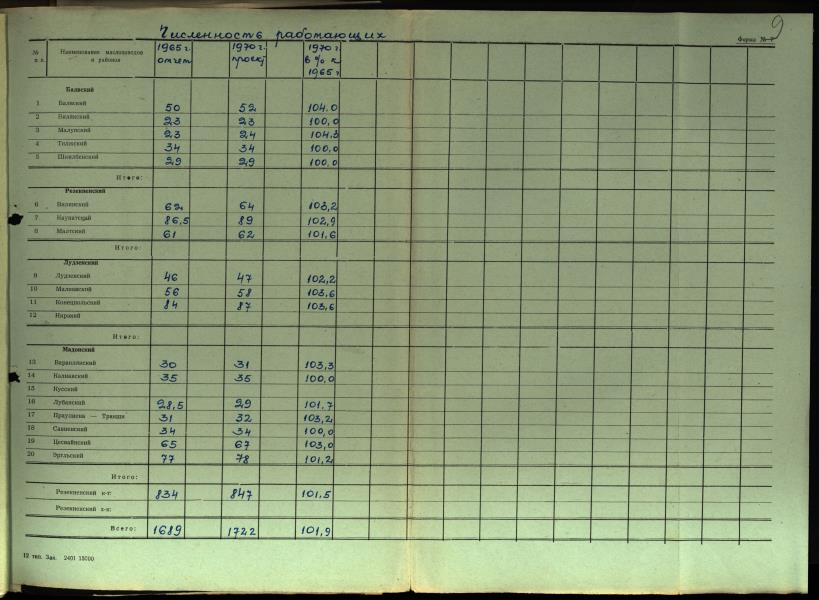 9
Численность работающих
Форма №
№ п. п. Наименование маслозаводов и районов 1965 г. отчет 1970 г. проект 1970 г. в % к 1965 г.
Балвский
1 Балвский 50 52 104.0
2 Вилянский 23 23 100,0
3 Малупский 23 24 104.3
4 Тилжский 34 34 100.0
5 Шкилбенский 29 29 100.0
Итого:
Резекненский
6 Вилянский 62 64 103,2
7 Каунатский 86,5 89 102,9
8 Малтский 61 62 101,6
Итого:
Лудзенский
9 Лудзенский 46 47 102,2
10 Малнавский 56 58 103,6
11 Конецпольский 84 87 103,6
12 Нирзский
Итого:
Мадонский
13 Варакланский 30 31 103,3
14 Калнавский 35 35 100,0
15 Кусский
16 Лубанский 28,5 29 101.7
17 Праулиена — Трякши 31 32 103,2
18 Савиенский 34 34 100.0
19 Цесвайнский 65 67 103,0
20 Эргльский 77 78 101,2
Итого:
Резекненский к-т: 834 847 101.5
Резекненский х-н:
Всего: 1689 1722 101,9
12 тип. Зак. 2401 15000